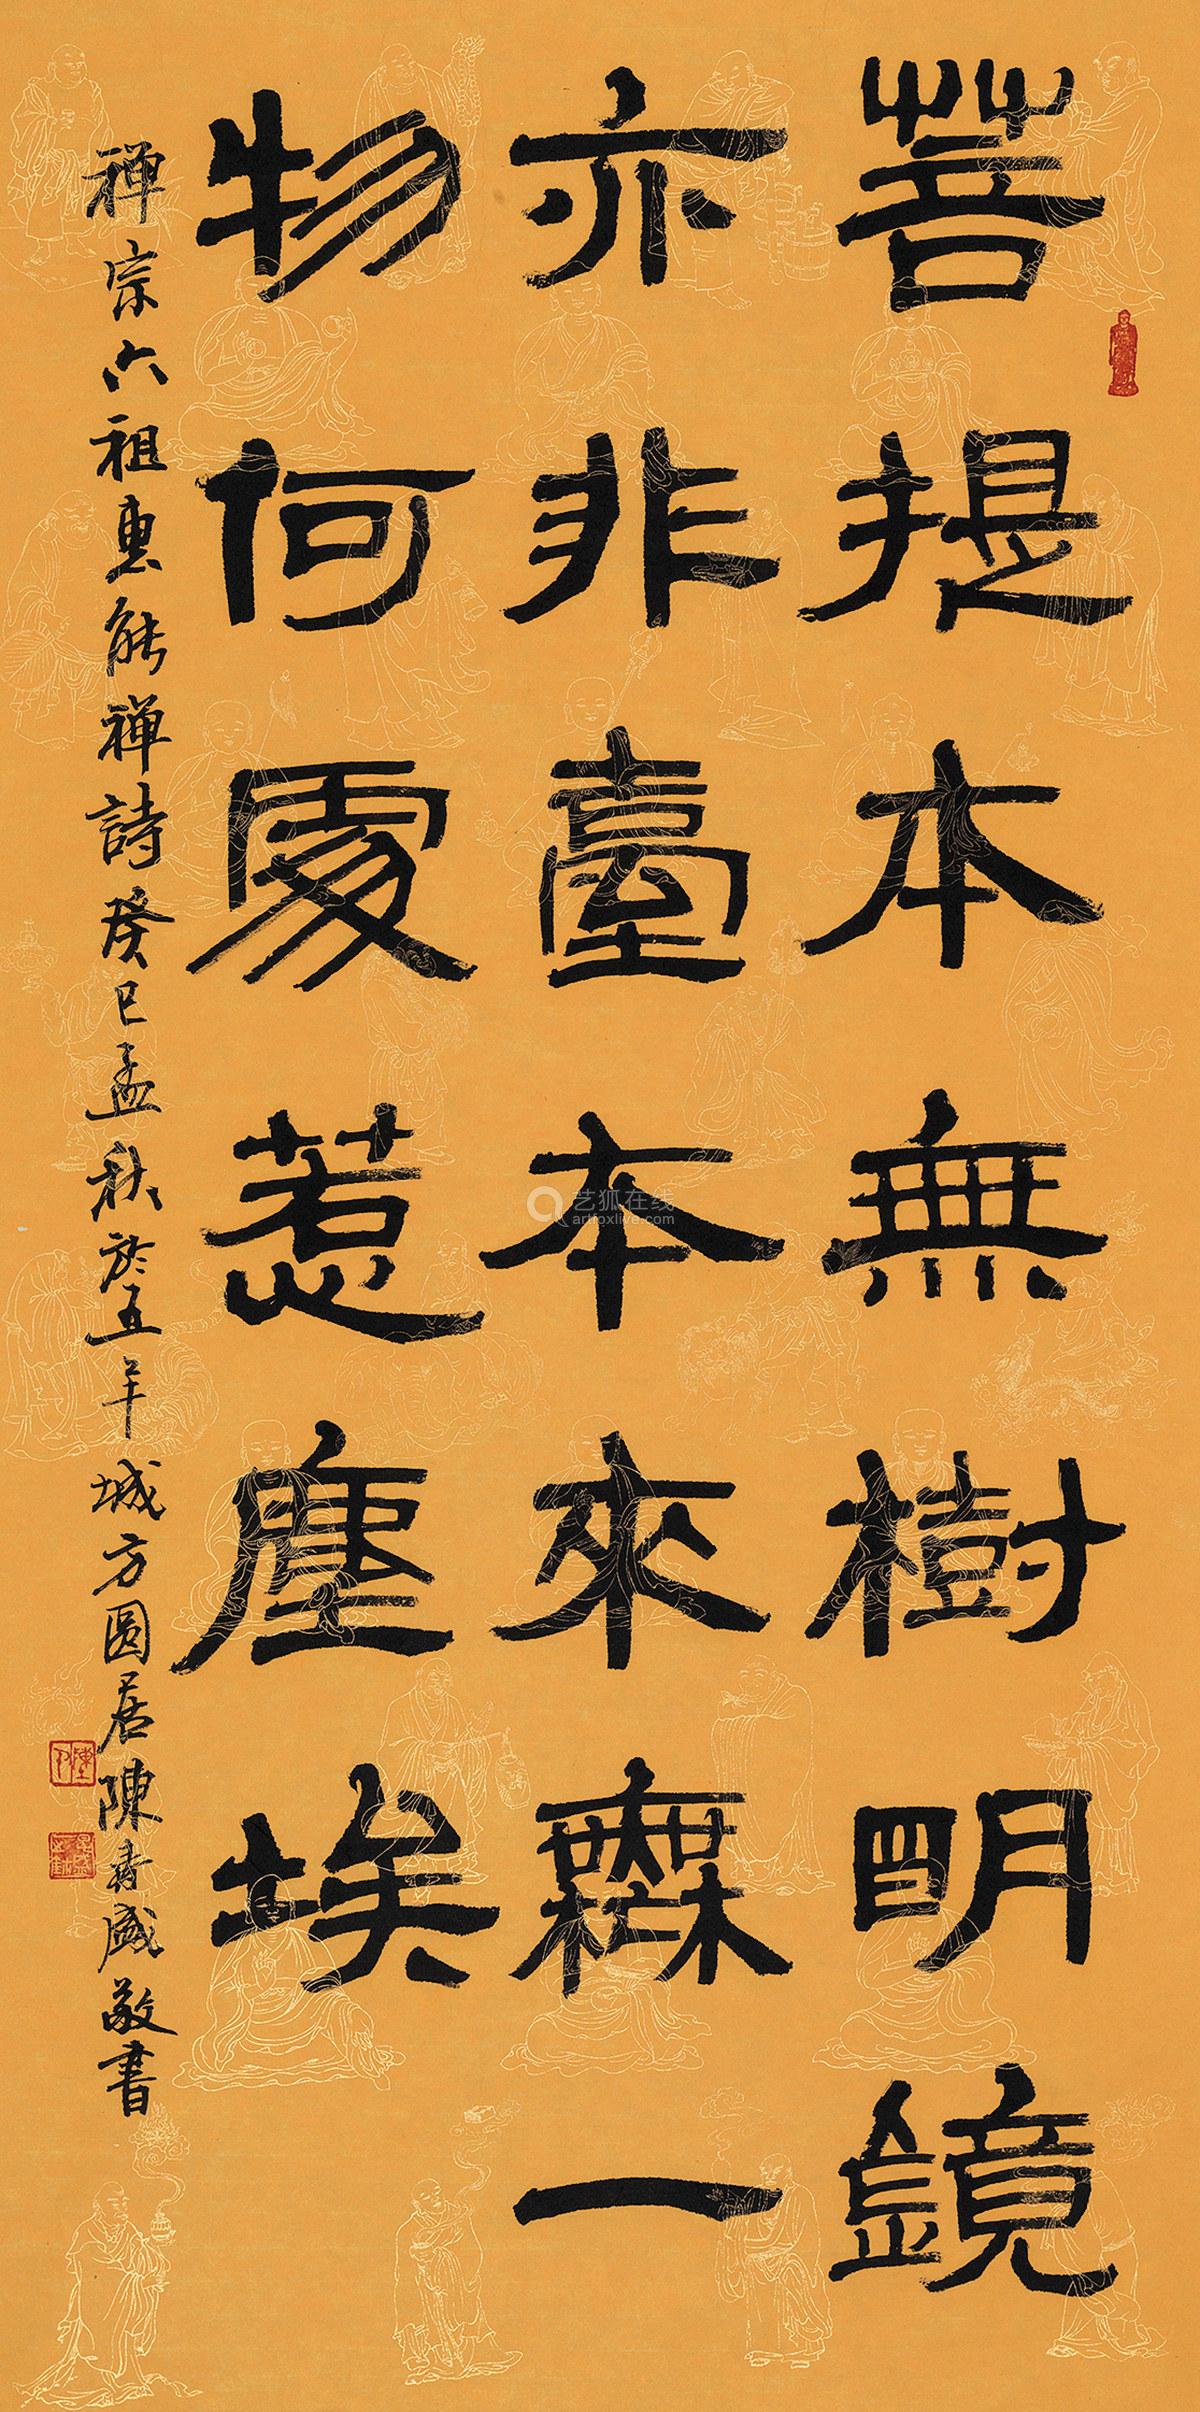 菩提本無樹明鏡
亦非臺本來橆一
物何處惹塵埃
禅宗六祖惠能禅詩癸巳孟秋於五羊城方圓居陳春盛敬書
艺狐在线
artfoxlive.com